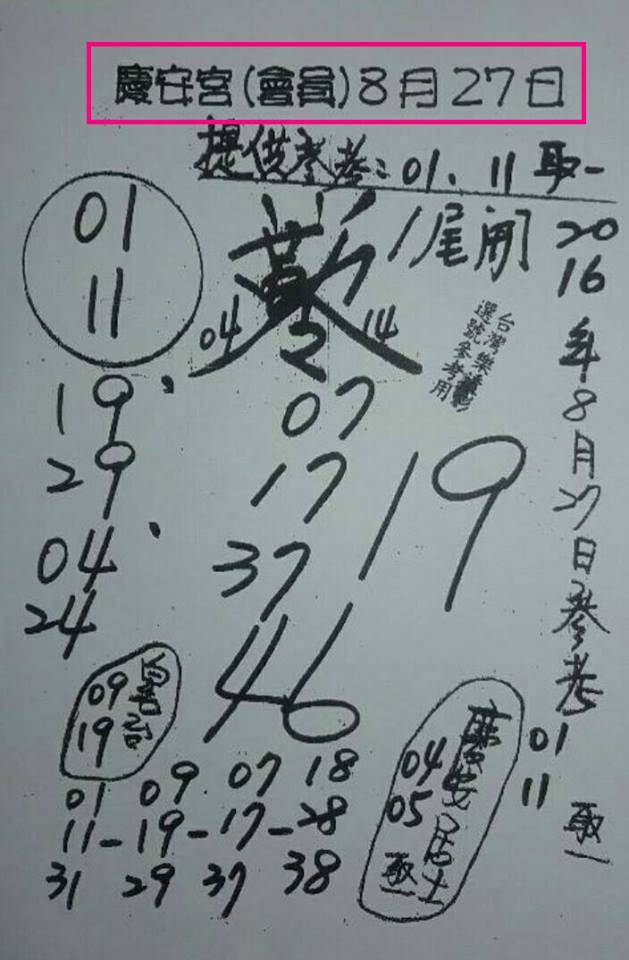 慶安宮(會員)8月27日
提供參考:01、11取一
1尾開
01
11
04
14
台灣樂透彩
選號參考用
2016年8月27日參考
01
11
取一
19、
29
04、
24
07
17
37
46
19
09
19
慶安居士
04
05
取一
01 09 07 18
11-19-17-28
31 29 37 38